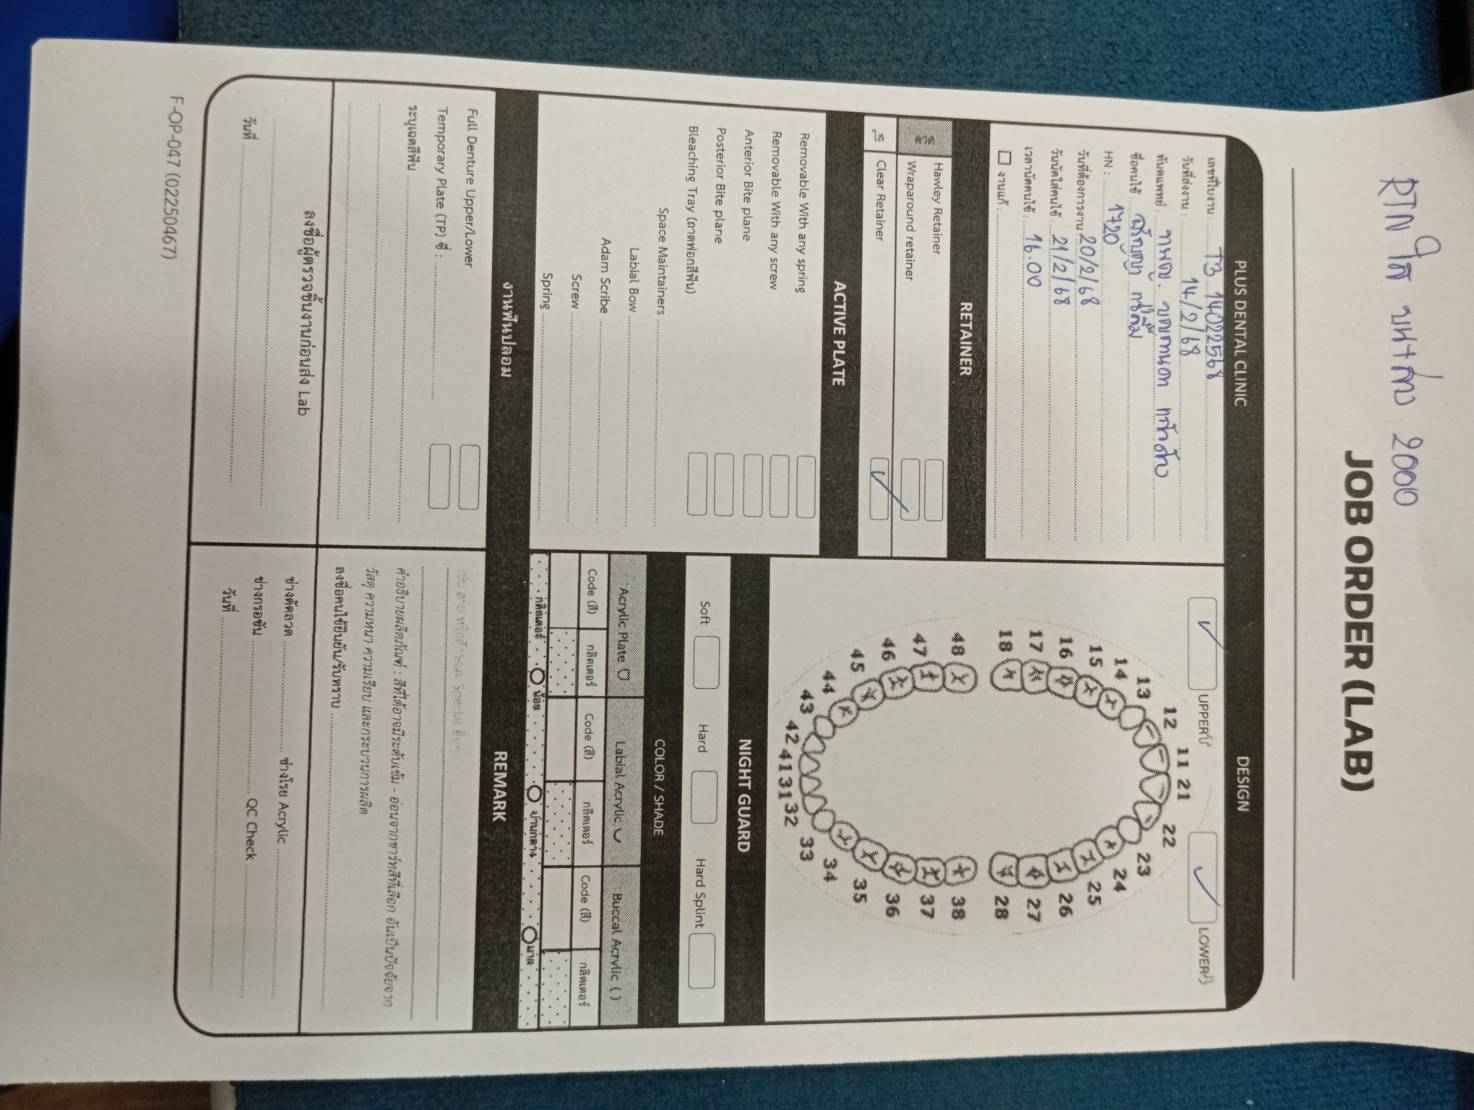 RTN ใส บน+ล่าง 2000
JOB ORDER (LAB)
PLUS DENTAL CLINIC
เลขที่ใบงาน T3 14022568
วันที่ส่งงาน : 14/2/68
ทันตแพทย์ :
ชื่อคนไข้
HN : 1720
วันที่ต้องการงาน 20/2/68
วันนัดใส่คนไข้ : 21/2/68
เวลานัดคนไข้ : 16.00
งานแก้ :
RETAINER
ลวด
Hawley Retainer
Wraparound retainer
ใส
Clear Retainer
ACTIVE PLATE
Removable With any spring
Removable With any screw
Anterior Bite plane
Posterior Bite plane
Bleaching Tray (ถาดฟอกสีฟัน)
Space Maintainers
Labial Bow
Adam Scribe
Screw
Spring
งานฟันปลอม
Full Denture Upper/Lower
Temporary Plate (TP) ซี่ :
ระบุเฉดสีฟัน
ลงชื่อผู้ตรวจชิ้นงานก่อนส่ง Lab
วันที่
DESIGN
UPPER
LOWER
11 21
12 22
13 23
14 24
15 25
16 26
17 27
18 28
48 38
47 37
46 36
45 35
44 34
43 33
42 41 31 32
NIGHT GUARD
Soft Hard Hard Splint
COLOR / SHADE
Acrylic Plate Labial Acrylic Buccal Acrylic ( )
Code (สี) กลิตเตอร์ Code (สี) กลิตเตอร์ Code (สี) กลิตเตอร์
กลิตเตอร์ น้อย ปานกลาง มาก
REMARK
คำอธิบายผลิตภัณฑ์ : สีที่ได้อาจมีระดับเข้ม - อ่อนจากชาร์ทสีที่เลือก อันเป็นปัจจัยจาก
วัสดุ ความหนา ความเรียบ และกระบวนการผลิต
ลงชื่อคนไข้ยืนยัน/รับทราบ
ช่างดัดลวด ช่างโรย Acrylic
ช่างกรอขัด QC Check
วันที่
F-OP-047 (02250467)